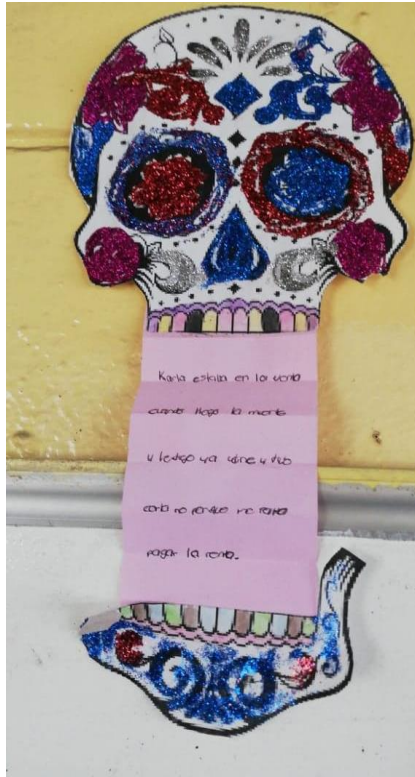 Karla estaba en la venta
cuando llego la muerte
y le dijo ya vine y tuo
carla no porque me falta
pagar la renta.